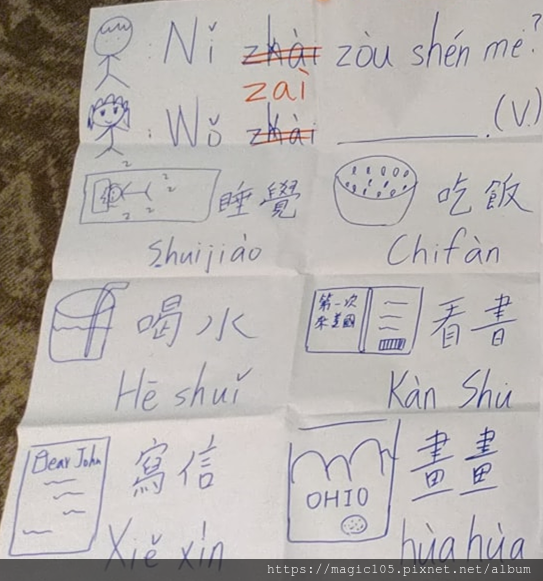 : Nǐ zhài zòu shén me?
zaì
: Wǒ zhài ________.(V.)
z z z z
睡覺
Shuìjiáo
吃飯
Chīfàn
喝水
Hē shuǐ
第一次
來美國
看書
Kàn Shū
Dear John
寫信
Xiě xìn
OHIO
畫畫
hùa hùa
https://magic105.pixnet.net/album